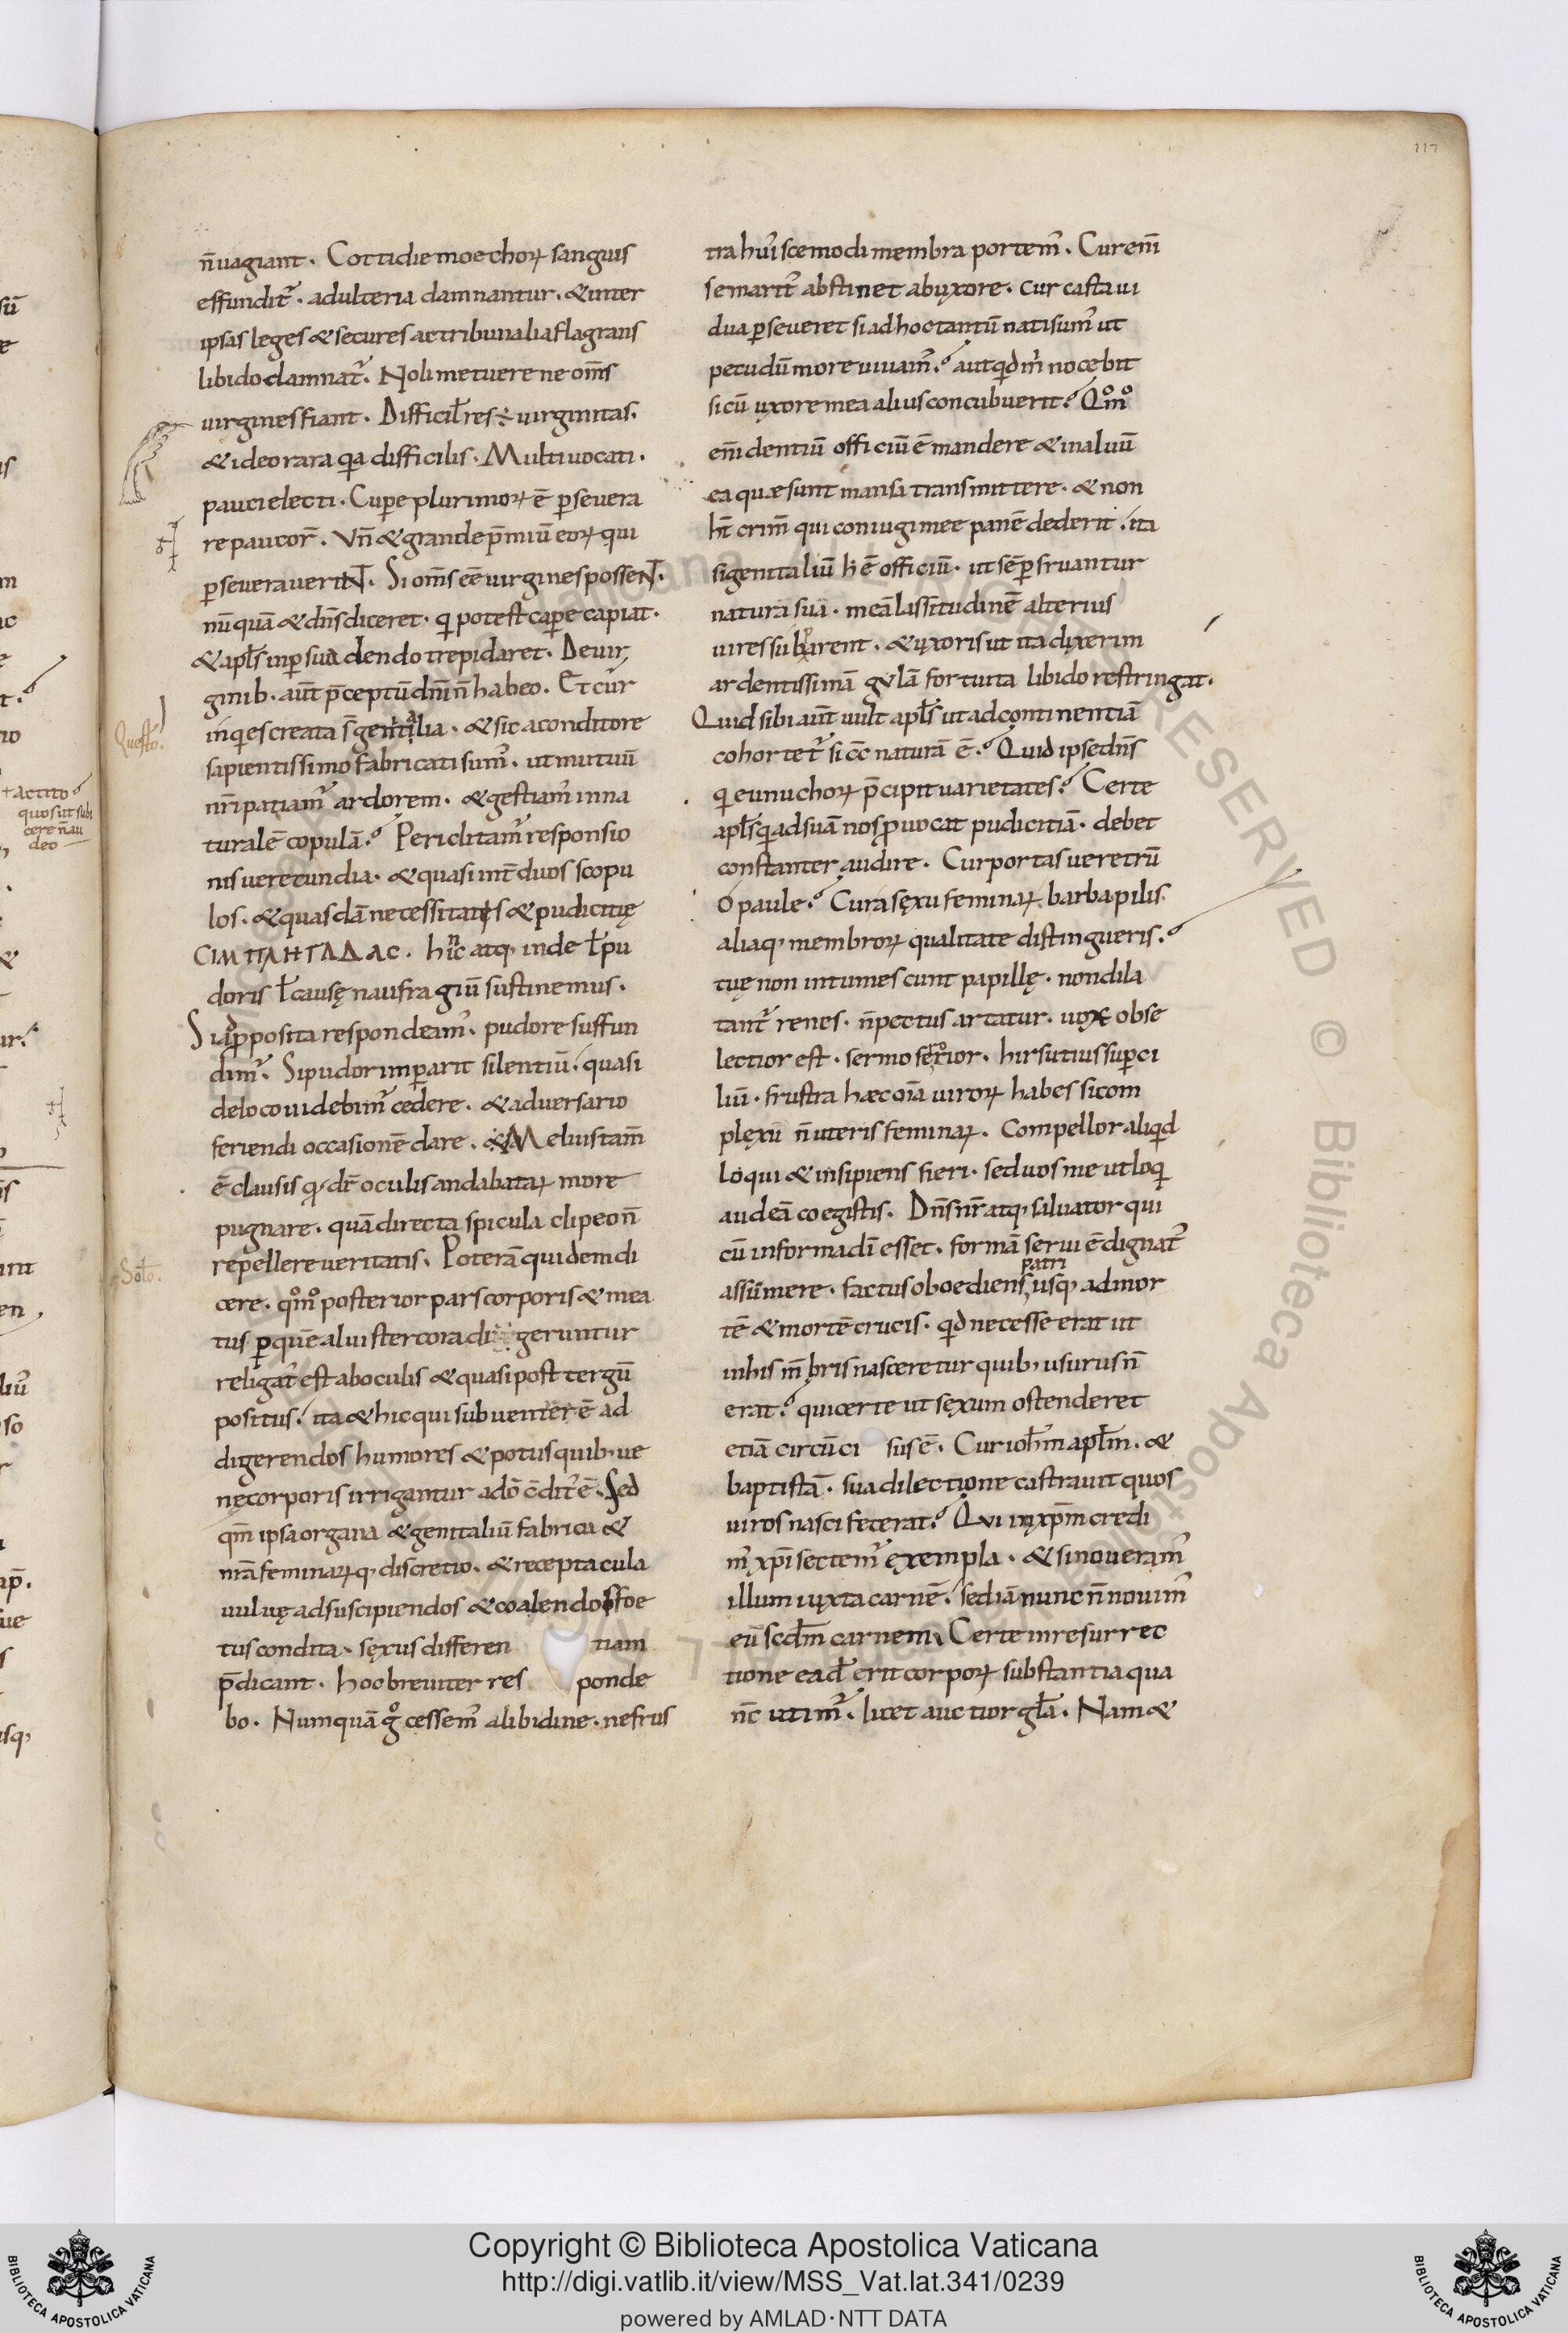 117
n̄ uagiant. Cottidie moechoꝝ sanguis
effundit᷑. adulteria damnantur. & inter
ipsas leges & secures ac tribunalia flagrans
libido damnat᷑. Noli metuere ne om̄s
uirgines fiant. Difficiƚ res ÷ uirginitas.
& ideo rara qa difficilis. Multi uocati.
pauci electi. Cuꝑe plurimoꝝ ē ꝑseuera
re paucor̄. Vn̄ & grande p̄miū eoꝝ qui
ꝑseuerauerint. Si om̄s eē uirgines possent.
nūquā & dn̄s diceret. qi potest caꝑe capiat.
& apƚs inꝑsuadendo trepidaret. De uir
ginib. aūt p̄ceptū dn̄i n̄ habeo. Et cur
inqies creata s̄ genitalia. & sic a conditore
sapientissimo fabricati sum᷑. ut mutuū
nr̄i patiam᷑ ardorem. & gestiam᷑ in na
turalē copulā? Periclitam᷑ responsio
nis uerecundia. & quasi int̄ duos scopu
los. & quasdā necessitates & pudicitię
CΙΜΠΛΗΓΑΔΑC. hinc atq, inde ƚ pu
doris ƚ causę naufragiū sustinemus.
Si ad ꝓposita respondeam᷑. pudore suffun
dim᷑. Si pudor imꝑarit silentiū. quasi
de loco uidebim᷑ cedere. & aduersario
feriendi occasionē dare. Melius tam̄
ē clausis qi dr̄ oculis andabataꝝ more
pugnare. quā directa spicula clipeo n̄
repellere ueritatis. Poterā quidem di
cere. qm̊o posterior pars corporis & mea
tus ꝑ quē alui stercora di geruntur
religat᷑ est ab oculis & quasi post tergū
positus. ita & hic qui sub uenter ē ad
digerendos humores & potus quib, ue
nę corporis irrigantur a dō c̄dit᷑ ē. Sed
qm̄ ipsa organa & genitaliū fabrica &
nr̄a feminaꝝq, discretio. & receptacula
uuluę ad suscipiendos & coalendos foe
tus condita. sęxus differen tiam
p̄dicant. hoc breuiter res ponde
bo. Numquā g̊ cessem᷑ a libidine. ne frus
Questo.
Solo.
tra hui᷑scemodi membra portem᷑. Cur eni᷑
se marit᷑ abstinet ab uxore. cur casta ui
dua ꝑseueret si ad hoc tantū nati sum᷑ ut
pecudū more uiuam᷑? aut qid m̄ nocebit
si cū uxore mea alius concubuerit? Qm̊o
en̄i dentiū officiū ē mandere & in aluū
ea quæ sunt mansa transmittere. & non
ht̄ crim̄ qui coniugi mee panē dederit. ita
si genitaliū h ē officiū. ut sēꝑ fruantur
natura sua. meā lassitudinē alterius
uires suꝑarent. & uxoris ut ita dyxerim
ardentissimā gulā fortuita libido restringat.
Quid sibi aūt uult apƚs ut ad continentiā
cohortet᷑ si cc̄ naturā ē? Quid ipse dn̄s
qi eunuchoꝝ p̄cipit uarietates? Certe
apƚs qi ad suā nos ꝓuocat pudicitiā. debet
constanter audire. Cur portas ueretrū
o paule? Cur a sęxu feminaꝝ barba pilis.
aliaq, membroꝝ qualitate distingueris?
tuę non intumescunt papillę. non dila
tant᷑ renes. n̄ pectus artatur. uox obse
lectior est. sermo ser̊ior. hirsutius suꝑci
liū. frustra hæc oīa uiroꝝ habes si com
plęxu n̄ uteris feminaꝝ. Compellor aliqid
loqui & insipiens fieri. sed uos me ut loqi
audeā coegistis. Dn̄s nr̄ atq, saluator qui
cū in forma dī esset. formā serui ē dignat᷑
patri
assūmere. factus oboediens usq, ad mor
tē & mortē crucis. qid necesse erat ut
in his m̄bris nasceretur quib, usurus n̄
erat? qui certe ut sęxum ostenderet
etiā circūci sus ē. Cur ioh̄m apƚm. &
baptistā. sua dilectione castrauit quos
uiros nasci fecerat? Qui in xp̄m credi
m᷑ xp̄i sectem᷑ exempla. & si noueram᷑
illum iuxta carnē. sed iā nunc n̄ nouim᷑
eū scdm̄ carnem. Certe in resurrec
tione eađ erit corpoꝝ substantia qua
nc̄ utim᷑. licet auctior gƚa. Nam &
actito
quos ut subi
cere n̄ au
deo
Copyright © Biblioteca Apostolica Vaticana
http://digi.vatlib.it/view/MSS_Vat.lat.341/0239
powered by AMLAD·NTT DATA
BIBLIOTECA APOSTOLICA VATICANA
BIBLIOTECA APOSTOLICA VATICANA